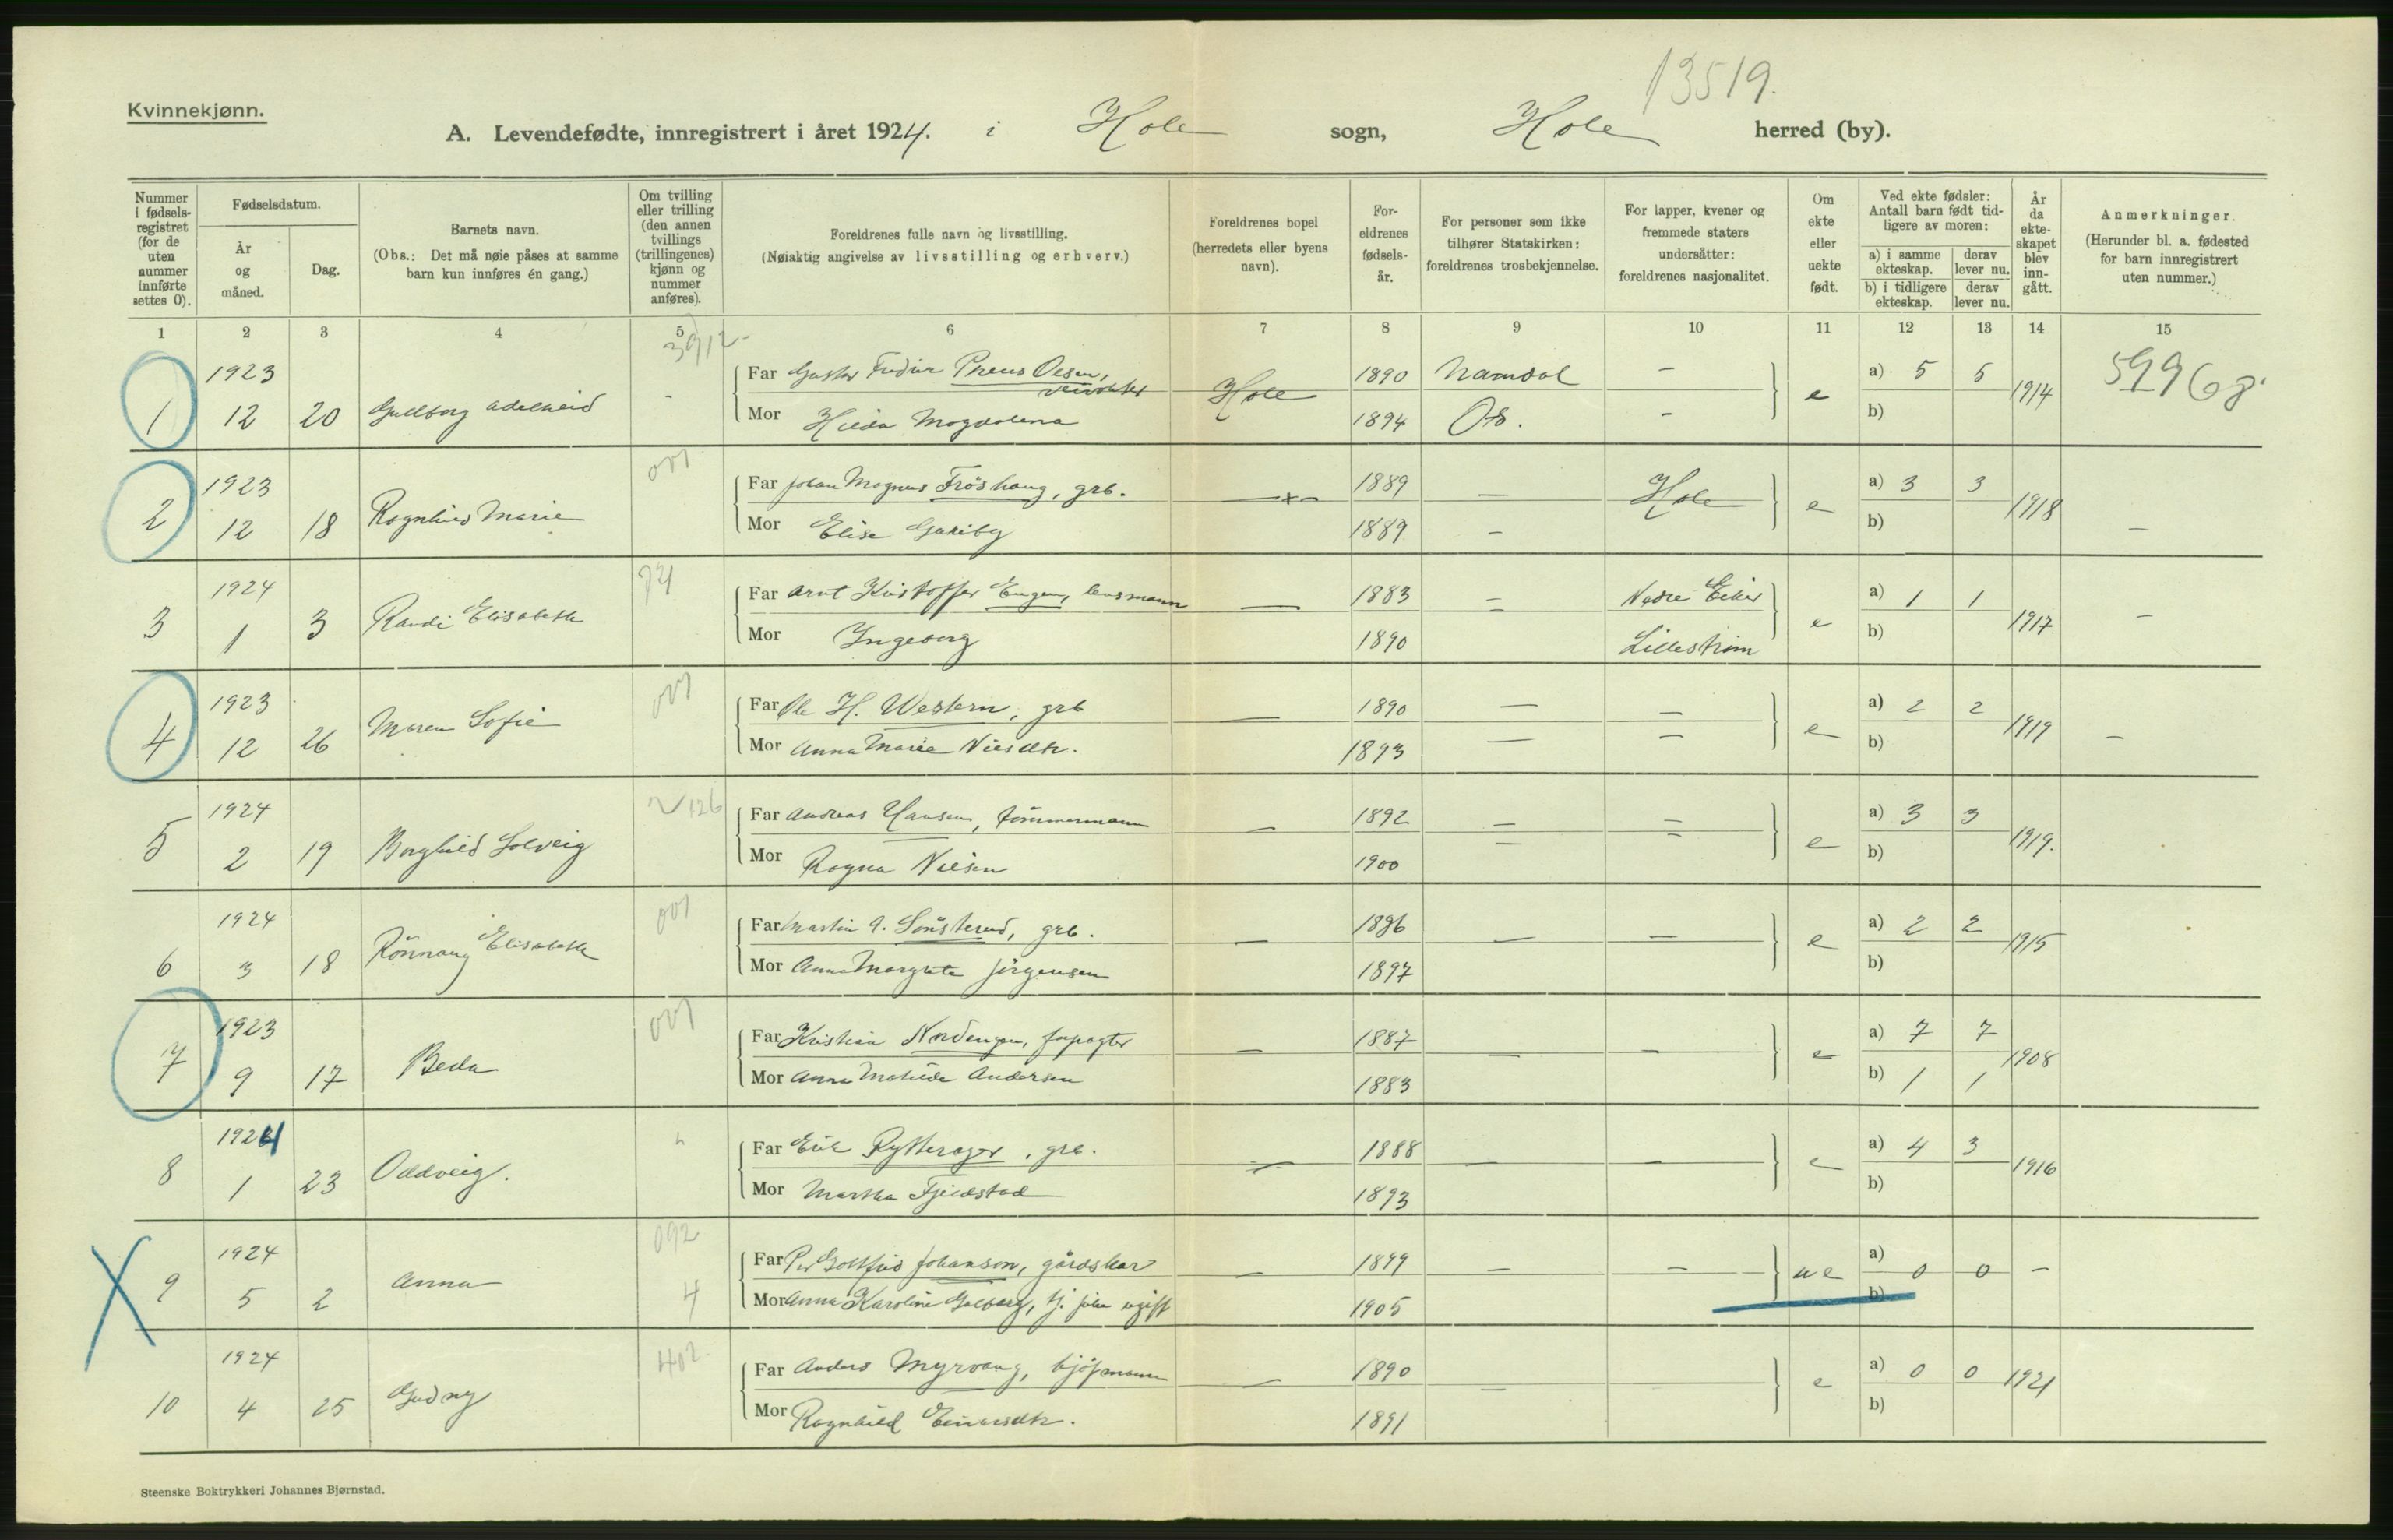 13519.
Kvinnekjønn.
A. Levendefødte, innregistrert i året 1924. i Hole sogn, Hole herred (by).
Nummer i fødsels-registret (for de uten nummer innførte settes 0).
Fødselsdatum.
År og måned.
Dag.
Barnets navn.
(Obs.: Det må nøie påses at samme barn kun innføres én gang.)
Om tvilling eller trilling (den annen tvillings (trillingenes) kjønn og nummer anføres).
Foreldrenes fulle navn og livsstilling.
(Nøiaktig angivelse av livsstilling og erhverv.)
Foreldrenes bopel (herredets eller byens navn).
For-eldrenes fødsels-år.
For personer som ikke tilhører Statskirken: foreldrenes trosbekjennelse.
For lapper, kvener og fremmede staters undersåtter: foreldrenes nasjonalitet.
Om ekte eller uekte født.
Ved ekte fødsler: Antall barn født tid-ligere av moren:
a) i samme ekteskap.
derav lever nu.
b) i tidligere ekteskap.
derav lever nu.
År da ekte-skapet blev inn-gått.
Anmerkninger.
(Herunder bl. a. fødested for barn innregistrert uten nummer.)
1 2 3 4 5 6 7 8 9 10 11 12 13 14 15
3912-
1 1923 12 20 Gullborg Adelheid -
Far Gustav Fredor Olsen, 1890 Namdal - a) 5 5
Mor Hilda Magdalena Hole 1894 Os. - e b) 1914 59968
001
2 1923 12 18 Ragnhild Marie
Far Johan Magnus Fröshaug, grb. -x- 1889 - Hole a) 3 3
Mor Elise Gureby 1889 - e b) 1918 -
3 1924 1 3 Randi Elisabeth
Far Arnt Kristoffer Engen, lensmann - 1883 - Nedre Eiker a) 1 1
Mor Ingeborg 1890 Lillestrøm e b) 1917 -
001
4 1923 12 26 Maren Sofie
Far Ole H. Western, grb - 1890 - - a) 2 2
Mor Anna Marie Nilsdtr. 1893 - - e b) 1919 -
126
5 1924 2 19 Borghild Solveig
Far Andreas Hansen, tömmermann - 1892 - - a) 3 3
Mor Ragna Nilsen 1900 - - e b) 1919.
001
6 1924 3 18 Rönnaug Elisabeth
Far Martin A. Sönsterud, grb. - 1886 - - a) 2 2
Mor Anna Margrete Jörgensen 1897 e b) 1915
001
7 1923 9 17 Beda
Far Kristian Nordengen, forpagter - 1887 - - a) 7 7
Mor Anna Matilde Andersen 1883 e b) 1 1 1908
8 1924 1 23 Oddveig.
Far Erik Rytterager, grb. - 1888 - - a) 4 3
Mor Martha Fjeldstad 1893 e b) 1916
092
9 1924 5 2 Anna 4
Far Per Gottfrid Johanson, gårdskar - 1899 - - a)
Mor Anna Karoline Golberg, tj. pike ugift 1905 ue 0 0 - b)
402.
10 1924 4 25 Gudny
Far Anders Myrvang, kjöpmann - 1890 - a) 0 0
Mor Ragnhild Einarsdtr. 1891 e b) 1921
Steenske Boktrykkeri Johannes Bjørnstad.